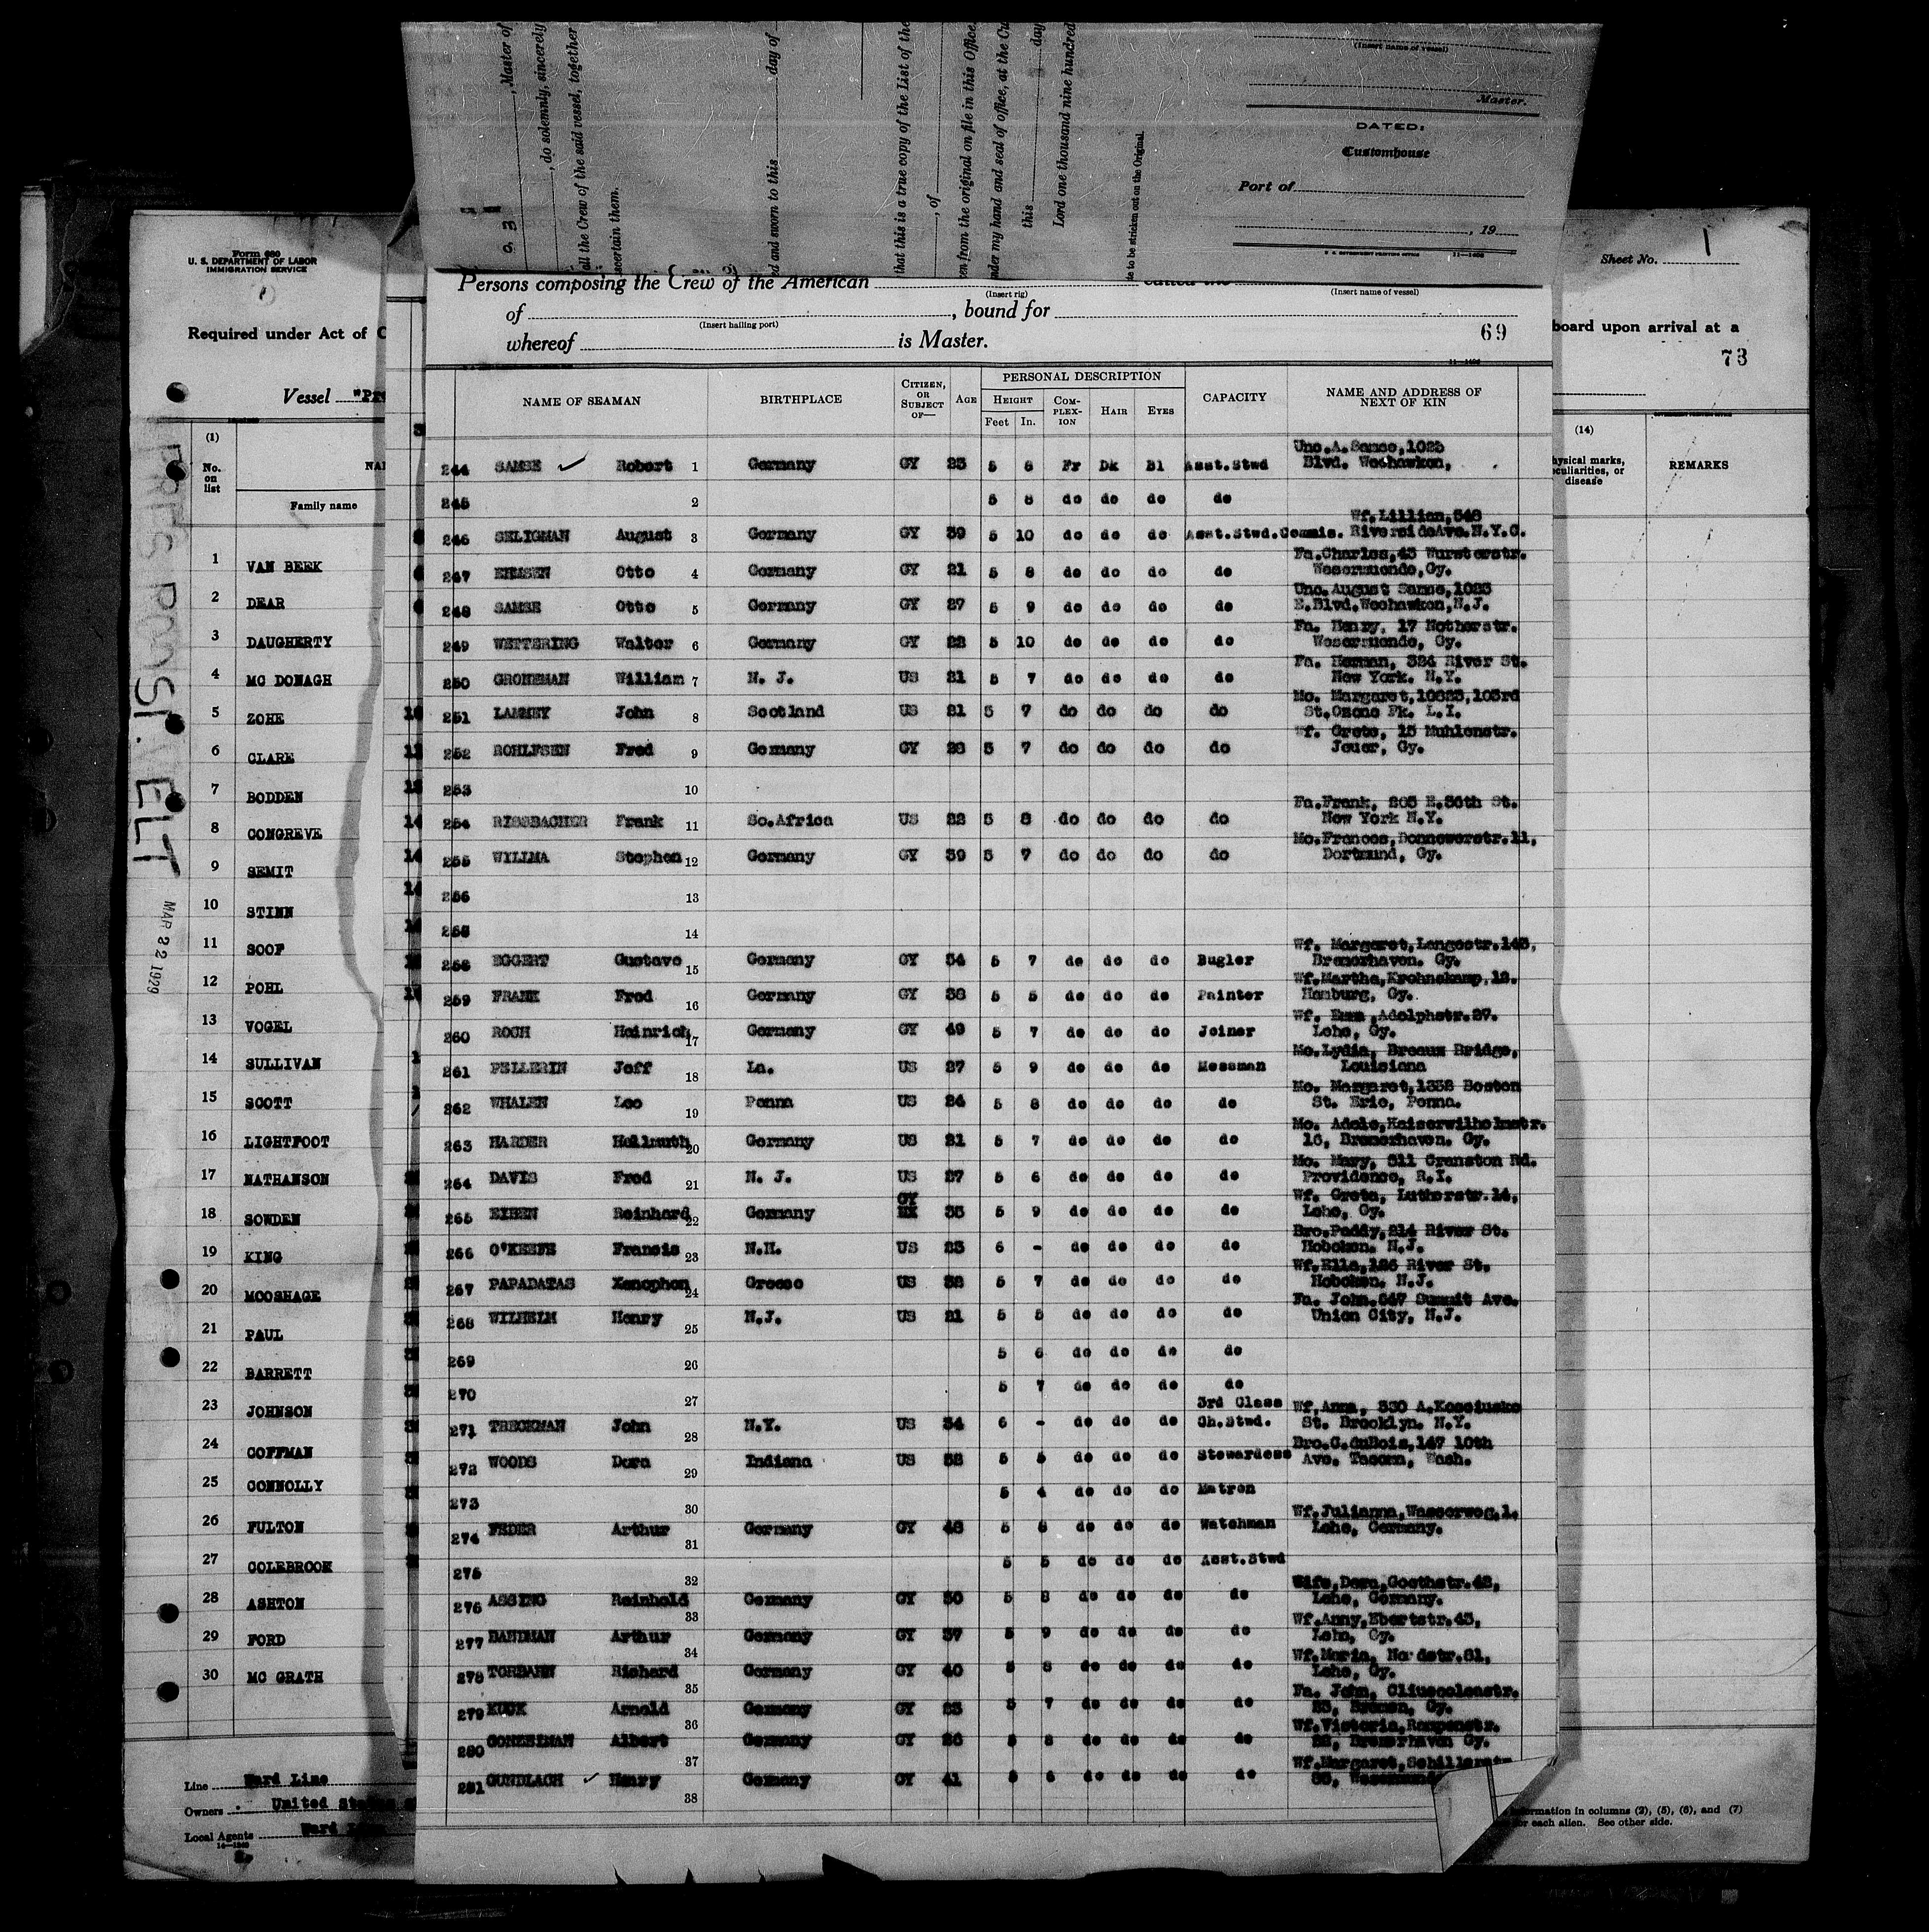 , Master of
, do solemnly, sincerely
all the Crew of the said vessel, together
scertain them.
ed and sworn to this day of
that this is a true copy of the List of the
, of
en from the original on file in this Office,
nder my hand and seal of office, at the Cu
this day
Lord one thousand nine hundred
te to be stricken out on the Original.
(Insert name of vessel)
Master.
DATED:
Customhouse
Port of
, 19
11—1408
Form 680
U. S. DEPARTMENT OF LABOR
IMMIGRATION SERVICE
Required under Act of C
Vessel "Pre
(1)
No. on list
NA
Family name
1 VAN BEEK
2 DEAR
3 DAUGHERTY
4 MC DONAGH
5 ZOHE
6 CLARE
7 BODDEN
8 CONGREVE
9 SEMIT
10 STINN
11 SOOF
12 POHL
13 VOGEL
14 SULLIVAN
15 SCOTT
16 LIGHTFOOT
17 NATHANSON
18 SOWDEN
19 KING
20 MOOSHAGE
21 PAUL
22 BARRETT
23 JOHNSON
24 COFFMAN
25 CONNOLLY
26 FULTON
27 COLEBROOK
28 ASHTON
29 FORD
30 MC GRATH
Line Ward Line
Owners United States
Local Agents Ward
PRES ROOSEVELT
MAR 22 1929
Persons composing the Crew of the American called the
(Insert rig) (Insert name of vessel)
of , bound for
(Insert hailing port)
whereof is Master.
69
NAME OF SEAMAN BIRTHPLACE CITIZEN, OR SUBJECT OF— AGE PERSONAL DESCRIPTION CAPACITY NAME AND ADDRESS OF NEXT OF KIN
HEIGHT COMPLEXION HAIR EYES
Feet In.
244 SAMSE ✓ Robert 1 Germany GY 23 5 8 Fr Dk Bl Asst.Stwd Unc.A.Samse,1025 Blvd. Weehawken,
245 2 5 8 do do do do
246 SELIGMAN August 3 Germany GY 39 5 10 do do do Asst.Stwd.Commis. Wf.Lillian,548 RiversideAve.N.Y.C.
247 Otto 4 Germany GY 21 5 8 do do do do Fa.Charles,43 Wursterstr. Wesermuende,Gy.
248 SAMSE Otto 5 Germany GY 27 5 9 do do do do Unc.August Samse,1025 E.Blvd.Weehawken,N.J.
249 WETTERING Walter 6 Germany GY 22 5 10 do do do do Fa. Henry, 17 Wesermuende, Gy.
250 GRONEMAN William 7 N. J. US 21 5 7 do do do do Fa. Herman, 324 River St. New York. N.Y.
251 LAMMEY John 8 Scotland US 21 5 7 do do do do Mo. Margaret,10825,103rd St.Ozone Pk. L.I.
252 ROHLFSEN Fred 9 Gemany GY 28 5 7 do do do do Wf. Grete, 15 Muhlenstr. Jever, Gy.
253 10
254 RISSBACHER Frank 11 So.Africa US 22 5 8 do do do do Fa.Frank, 205 E.36th St. New York N.Y.
255 WILLMA Stephen 12 Germany GY 39 5 7 do do do do Mo.Frances, Dortmund, Gy.
256 13
14
258 EGGERT Gustave 15 Germany GY 34 5 7 do do do Bugler Wf. Margaret,Langestr.143, Bremerhaven. Gy.
259 FRANK Fred 16 Germany GY 38 5 5 do do do Painter Wf.Martha,Krohnskamp,12. Hamburg, Gy.
260 ROCH Heinrich 17 Germany GY 49 5 7 do do do Joiner Wf. Emma,Adolphstr.27. Lehe, Gy.
261 PELLERIN Jeff 18 La. US 27 5 9 do do do Messman Mo.Lydia, Breaux Bridge, Louisiana
262 WHALEN Leo 19 Penna US 24 5 8 do do do do Mo. Margaret,1338 Boston St. Erie, Penna.
263 HARDER Hellmuth 20 Germany US 21 5 7 do do do do Mo. Adele,Kaiserwilhelmstr. 16, Bremerhaven. Gy.
264 DAVIS Fred 21 N. J. US 27 5 6 do do do do Mo. Mary, 311 Cranston Rd. Providence, R.I.
265 EIBEN Reinhard 22 Germany GY 35 5 9 do do do do Wf. Greta, Lutherstr.14, Lehe, Gy.
266 O'KEEFE Francis 23 N.H. US 23 6 - do do do do Bro.Paddy,214 River St. Hoboken. N.J.
267 PAPADATAS Xenophon 24 Greece US 32 5 7 do do do do Wf.Ella,126 River St. Hoboken. N.J.
268 WILHELM Henry 25 N.J. US 21 5 5 do do do do Fa. John.647 Summit Ave. Union City, N.J.
269 26 5 6 do do do do
270 27 5 7 do do do do
271 TRECKMAN John 28 N.Y. US 34 6 - do do do 3rd Class Ch.Stwd. Wf.Anna, 330 A.Kosciusko St. Brooklyn. N.Y.
272 WOODS Dora 29 Indiana US 38 5 5 do do do Stewardess Bro.G.duBois,147 10th Ave. Tacoma, Wash.
273 30 5 4 do do do Matron
274 FEDER Arthur 31 Germany GY 48 5 8 do do do Watchman Wf.Julianna,Wasserweg,1. Lehe, Germany.
275 32 5 5 do do do Asst.Stwd
276 ASSING Reinhold 33 Germany GY 30 5 8 do do do do Wife,Dora,Goethstr.42, Lehe, Germany.
277 BANDMAN Arthur 34 Germany GY 37 5 9 do do do do Wf.Anny,Ebertstr.45, Lehe, Gy.
278 TORBAHN Richard 35 Germany GY 40 5 8 do do do do Wf.Maria, No dstr.81, Lehe, Gy.
279 KUCK Arnold 36 Germany GY 23 5 7 do do do do Fa. John, Bremen, Gy.
280 Albert 37 Germany GY 26 5 8 do do do do Wf.Victoria, Bremerhaven Gy.
281 GUNDLACH ✓ Henry 38 Germany GY 41 5 6 do do do do Wf.Margaret,Schillerstr
Sheet No. 1
board upon arrival at a
73
(14)
hysical marks, culiarities, or disease
REMARKS
nformation in columns (2), (5), (6), and (7)
or each alien. See other side.